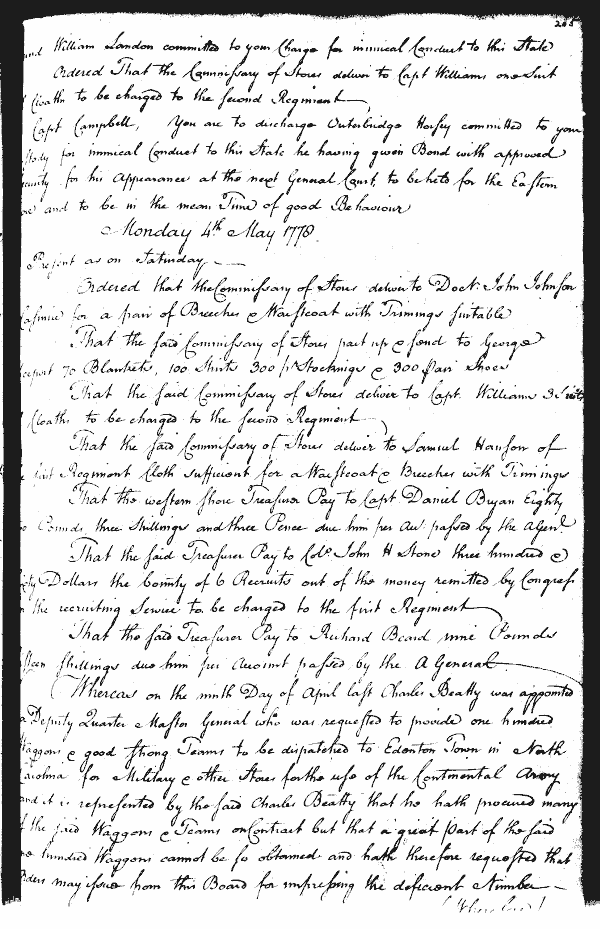 208
and William London committed to your Charge for inimical Conduct to this State
Ordered That the Commissary of Stores deliver to Capt Williams one Suit
Cloaths to be charged to the second Regiment
Capt Campbell, You are to discharge Outerbridge Horsey committed to your
for inimical Conduct to this State he having given Bond with approved
for his Appearance at the next General Court, to be held for the Eastern
and to be in the mean Time of good Behaviour
Monday 4th May 1778.
Present as on Saturday
Ordered that the Commissary of Stores deliver to Doctr John Johnson
for a pair of Breeches & Waistcoat with Trimings suitable
That the said Commissary of Stores put up & send to George
70 Blankets, 100 Shirts 300 pr Stockings & 300 pair Shoes
That the said Commissary of Stores deliver to Capt. Williams 3 Suits
Cloaths to be charged to the second Regiment
That the said Commissary of Stores deliver to Samuel Hanson of
Regiment Cloth sufficient for a Waistcoat & Breeches with Trimings
That the western shore Treasurer Pay to Capt Daniel Bryan Eighty
Pounds three Shillings and three Pence due him per Acct. passed by the A Genl.
That the said Treasurer Pay to Colo. John H Stone three hundred &
Dollars the bounty of 6 Recruits out of the money remitted by Congress
the recruiting Service to be charged to the first Regiment
That the said Treasurer Pay to Richard Beard nine Pounds
Shillings due him per Account passed by the A General
Whereas on the ninth Day of April last Charles Beatty was appointed
a Deputy Quarter Master General who was requested to provide one hundred
Waggons & good strong Teams to be dispatched to Edenton Town in North
Carolina for Military & other Stores for the use of the Continental Army
and it is represented by the said Charles Beatty that he hath procured many
of the said Waggons & Teams on Contract but that a great Part of the said
hundred Waggons cannot be so obtained and hath therefore requested that
Orders may issue from this Board for impressing the deficient Number